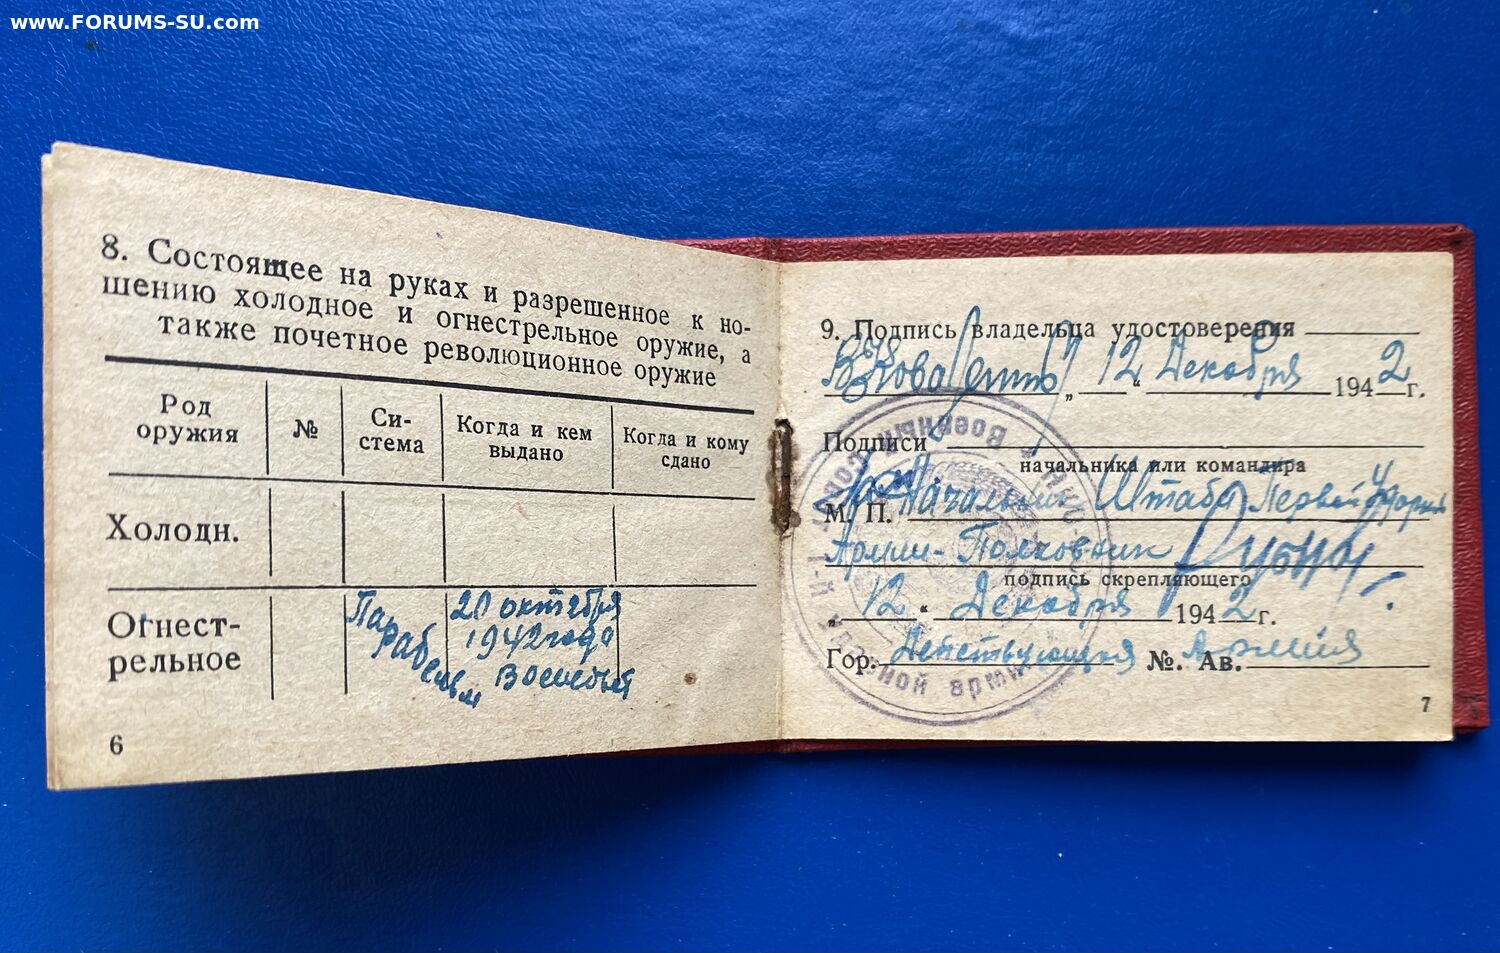 www.FORUMS-SU.com
8. Состоящее на руках и разрешенное к но-
шению холодное и огнестрельное оружие, а
также почетное революционное оружие
Род оружия
№
Си-
стема
Когда и кем
выдано
Когда и кому
сдано
Холодн.
Огнест-
рельное
Па
рабеллм
20 октября
1942 года
6
9. Подпись владельца удостоверения
„12“ Декабря 1942 г.
Подписи
начальника или командира
М. П. Начальник Штаба Первой Ударн
Армии - Полковник
подпись скрепляющего
„12“ Декабря 1942 г.
Гор. Действующая №. Ав. Армия
7